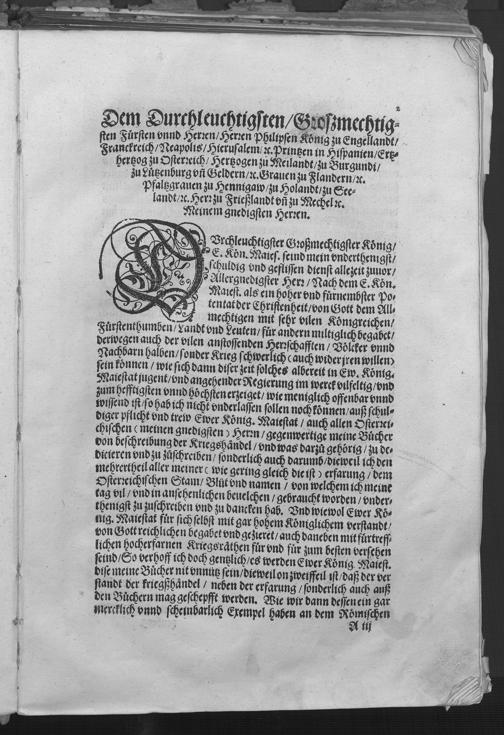 2
Dem Durchleuchtigsten/Großmechtig-
sten Fürsten vnnd Herren/Herren Philipsen König zu Engellandt/
Franckreich/Neapolis/Hierusalem/ꝛc. Printzen in Hispanien/Ertz-
hertzog zu Osterreich/Hertzogen zu Meilandt/zu Burgundi/
zu Lützenburg vñ Geldern/ꝛc. Grauen zu Flandern/ꝛc.
Pfaltzgrauen zu Hennigaw/zu Holandt/zu See-
landt/ꝛc. Herꝛ zu Frießlandt vñ zu Mechel ꝛc.
Meinem gnedigsten Herren.
DVrchleuchtigster Großmechtigster König/
E. Kön. Maies. seind mein vnderthenigst/
schuldig vnd geflissen dienst allezeit zuuor/
Allergnedigster Herꝛ/Nach dem E. Kön.
Maiest. als ein hoher vnd fürnembster Po-
tentat der Christenheit/von Gott dem All-
mechtigen mit sehr vilen Königreichen/
Fürstenthumben/Landt vnd Leuten/für andern miltiglich begabet/
derwegen auch der vilen anstossenden Herꝛschafften/Völcker vnnd
Nachbarn halben/sonder Krieg schwerlich (auch wider jren willen)
sein können/wie sich dann diser zeit solches albereit in Ew. König.
Maiestat jugent/vnd angehender Regierung im werck vilfeltig/vnd
zum hefftigsten vnnd höchsten erzeiget/wie meniglich offenbar vnnd
wissend ist/so hab ich nicht vnderlassen sollen noch können/auß schul-
diger pflicht vnd trew Ewer König. Maiestat/auch allen Osterrei-
chischen (meinen gnedigsten) Herrn/gegenwertige meine Bücher
von beschreibung der Kriegshändel/vnd was darzů gehörig/zu de-
dicieren vnd zů zůschreiben/sonderlich auch darumb/dieweil ich den
mehrertheil aller meiner (wie gering gleich die ist) erfarung/dem
Osterreichischen Stam/Blůt vnd namen/von welchem ich meine
tag vil/vnd in ansehenlichen beuelchen/gebraucht worden/vnder-
thenigst zu zuschreiben vnd zu dancken hab. Vnd wiewol Ewer Kö-
nig. Maiestat für sich selbst mit gar hohem Königlichem verstandt/
von Gott reichlichen begabet vnd gezieret/auch daneben mit fürtreff-
lichen hocherfarnen Kriegsräthen für vnd für zum besten versehen
seind/So verhoff ich doch gentzlich/es werden Ewer König Maiest.
dise meine Bücher nit vnnütz sein/dieweil on zweiffel ist/daß der ver
standt der kriegßhändel/neben der erfarung/sonderlich auch auß
den Büchern mag geschepfft werden. Wie wir dann dessen ein gar
mercklich vnnd scheinbarlich Exempel haben an dem Römischen
A iij